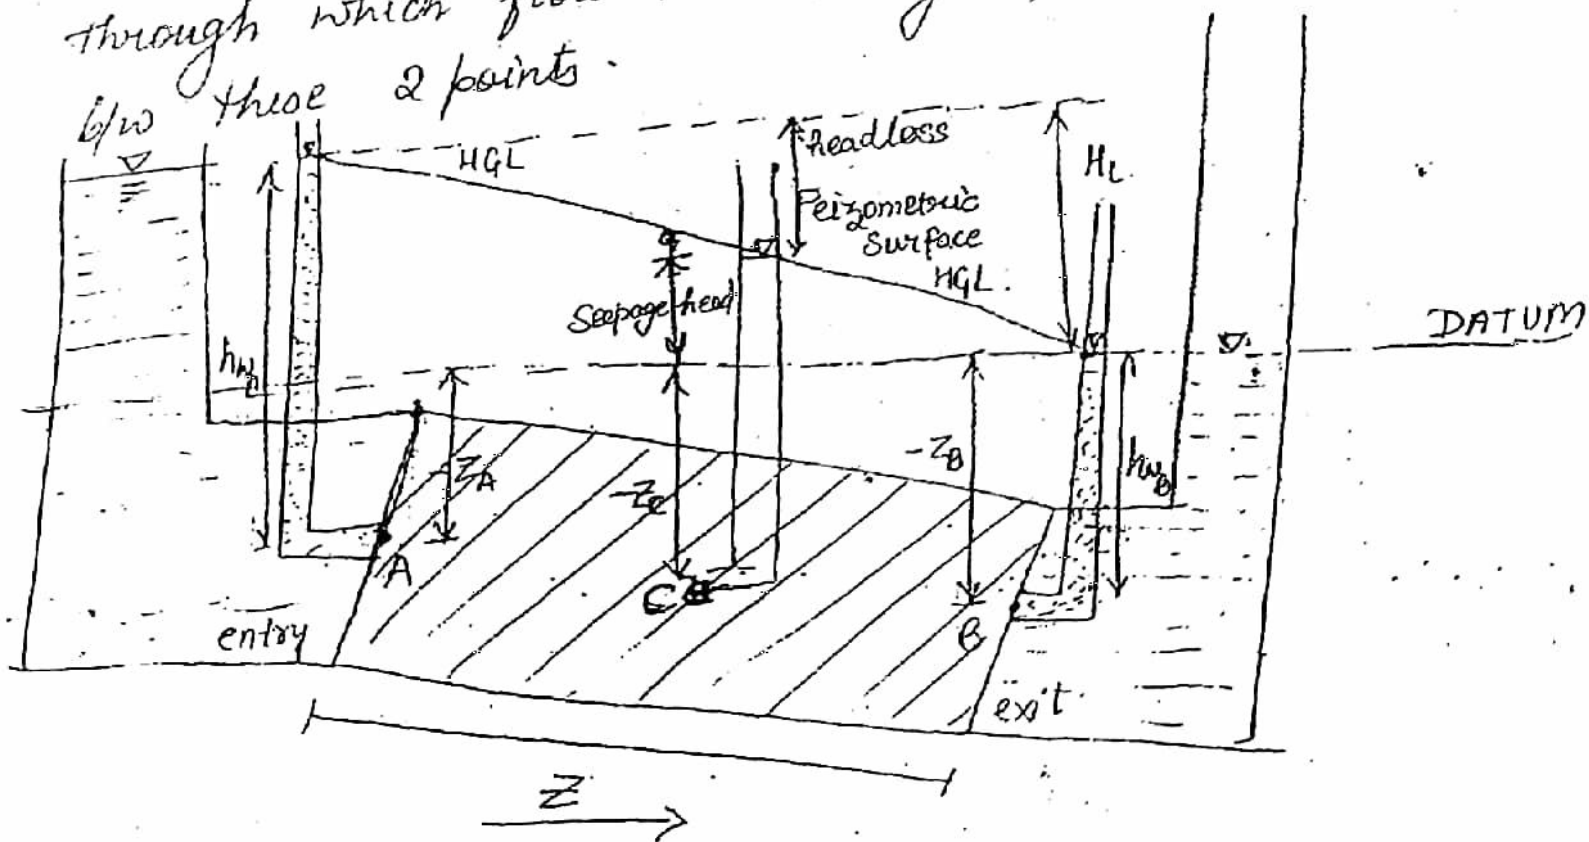 through which
b/w these 2 points.
headloss
HGL
HL
Peizometric
Surface
HGL.
Seepage head
DATUM
hwA
-ZA
-ZC
-ZB
hwB
A
C
B
entry
exit.
Z